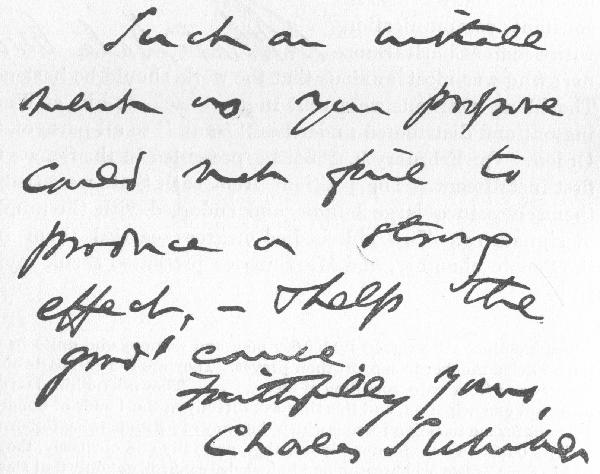 Such a settle
ment as you propose
could not fail to
produce a strong
effect, – & help the
good cause.
Faithfully Yours,
Charles Sumner